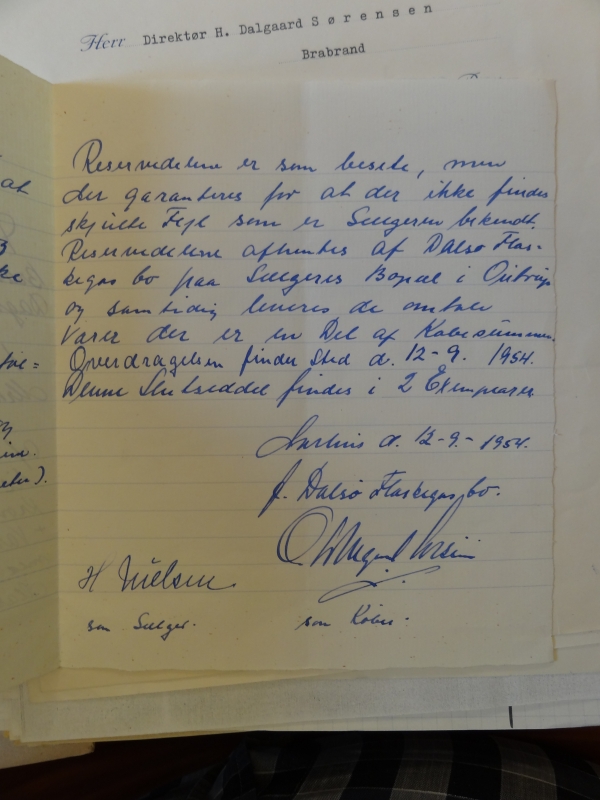 Herr Direktør H. Dalgaard Sørensen
Brabrand
Reservedelene er som besete, men
der garanteres for at der ikke findes
skjulte Fejl som er Sælgeren bekendt.
Reservedelene afhentes af Dalsø Flas-
kegas bo paa Sælgeres Bopæl i
og samtidig leveres de omtale
Varer der er en Del af Købesummen.
Overdragelsen finder Sted d. 12-9. 1954.
Denne Slutseddel findes i 2 Exemplarer
Aarhus d. 12-9.-1954.
f. Dalsø Flaskegas bo.
H Nielsen
som Sælger.
som Køber.
at